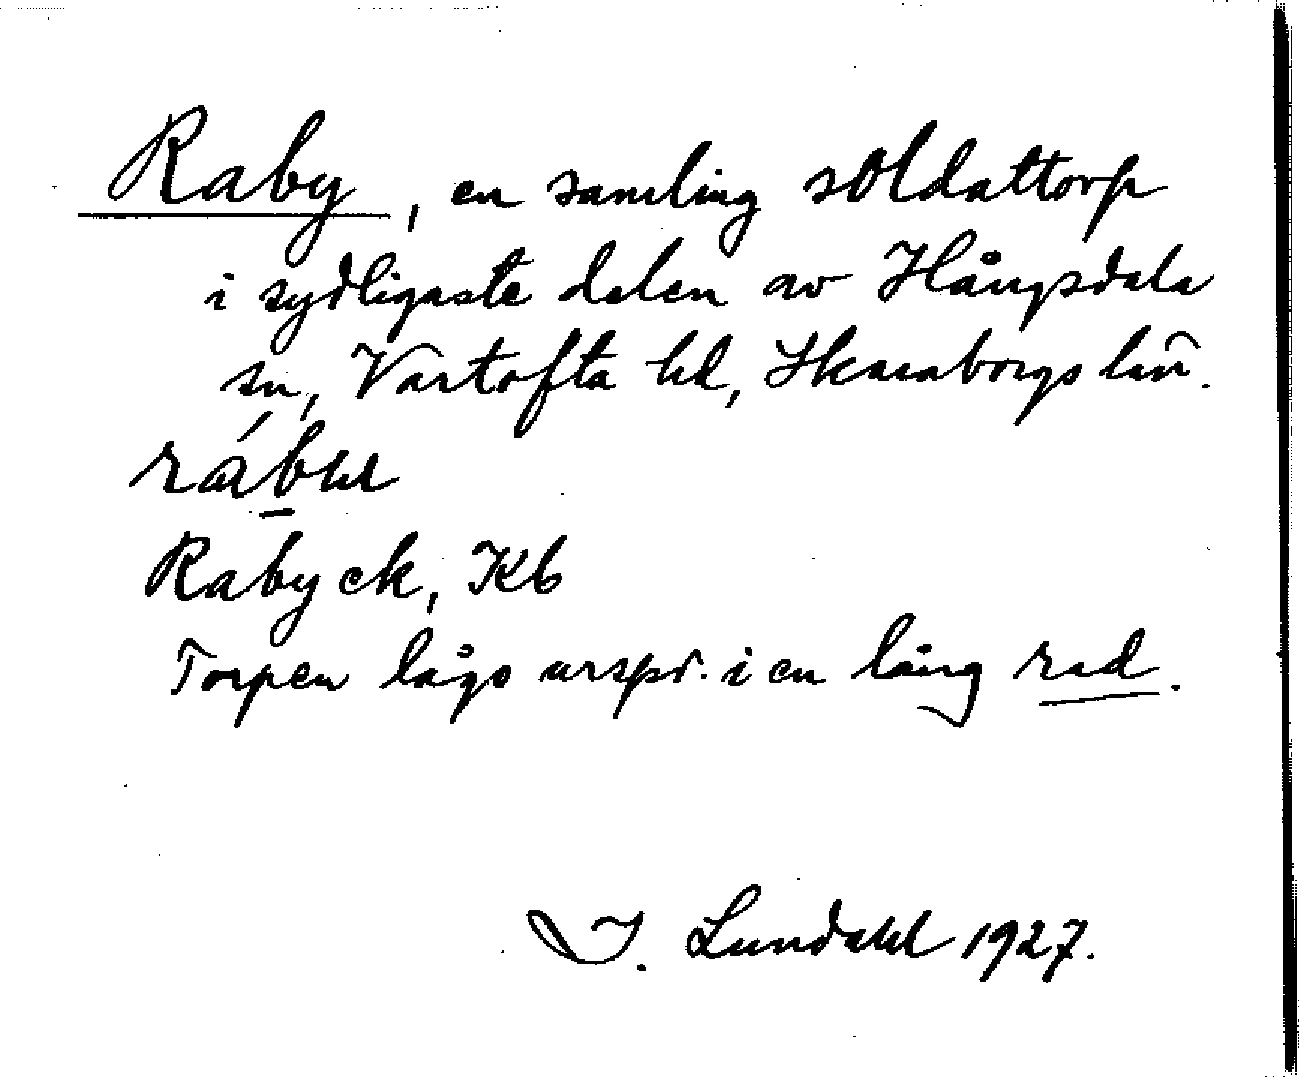 Raby, en samling soldattorp
i sydligaste delen av Hångsdala
sn, Vartofta hd, Skaraborgs län.
Rabyck, Kb
Torpen lågo urspr. i en lång rad.
I. Lundahl 1927.